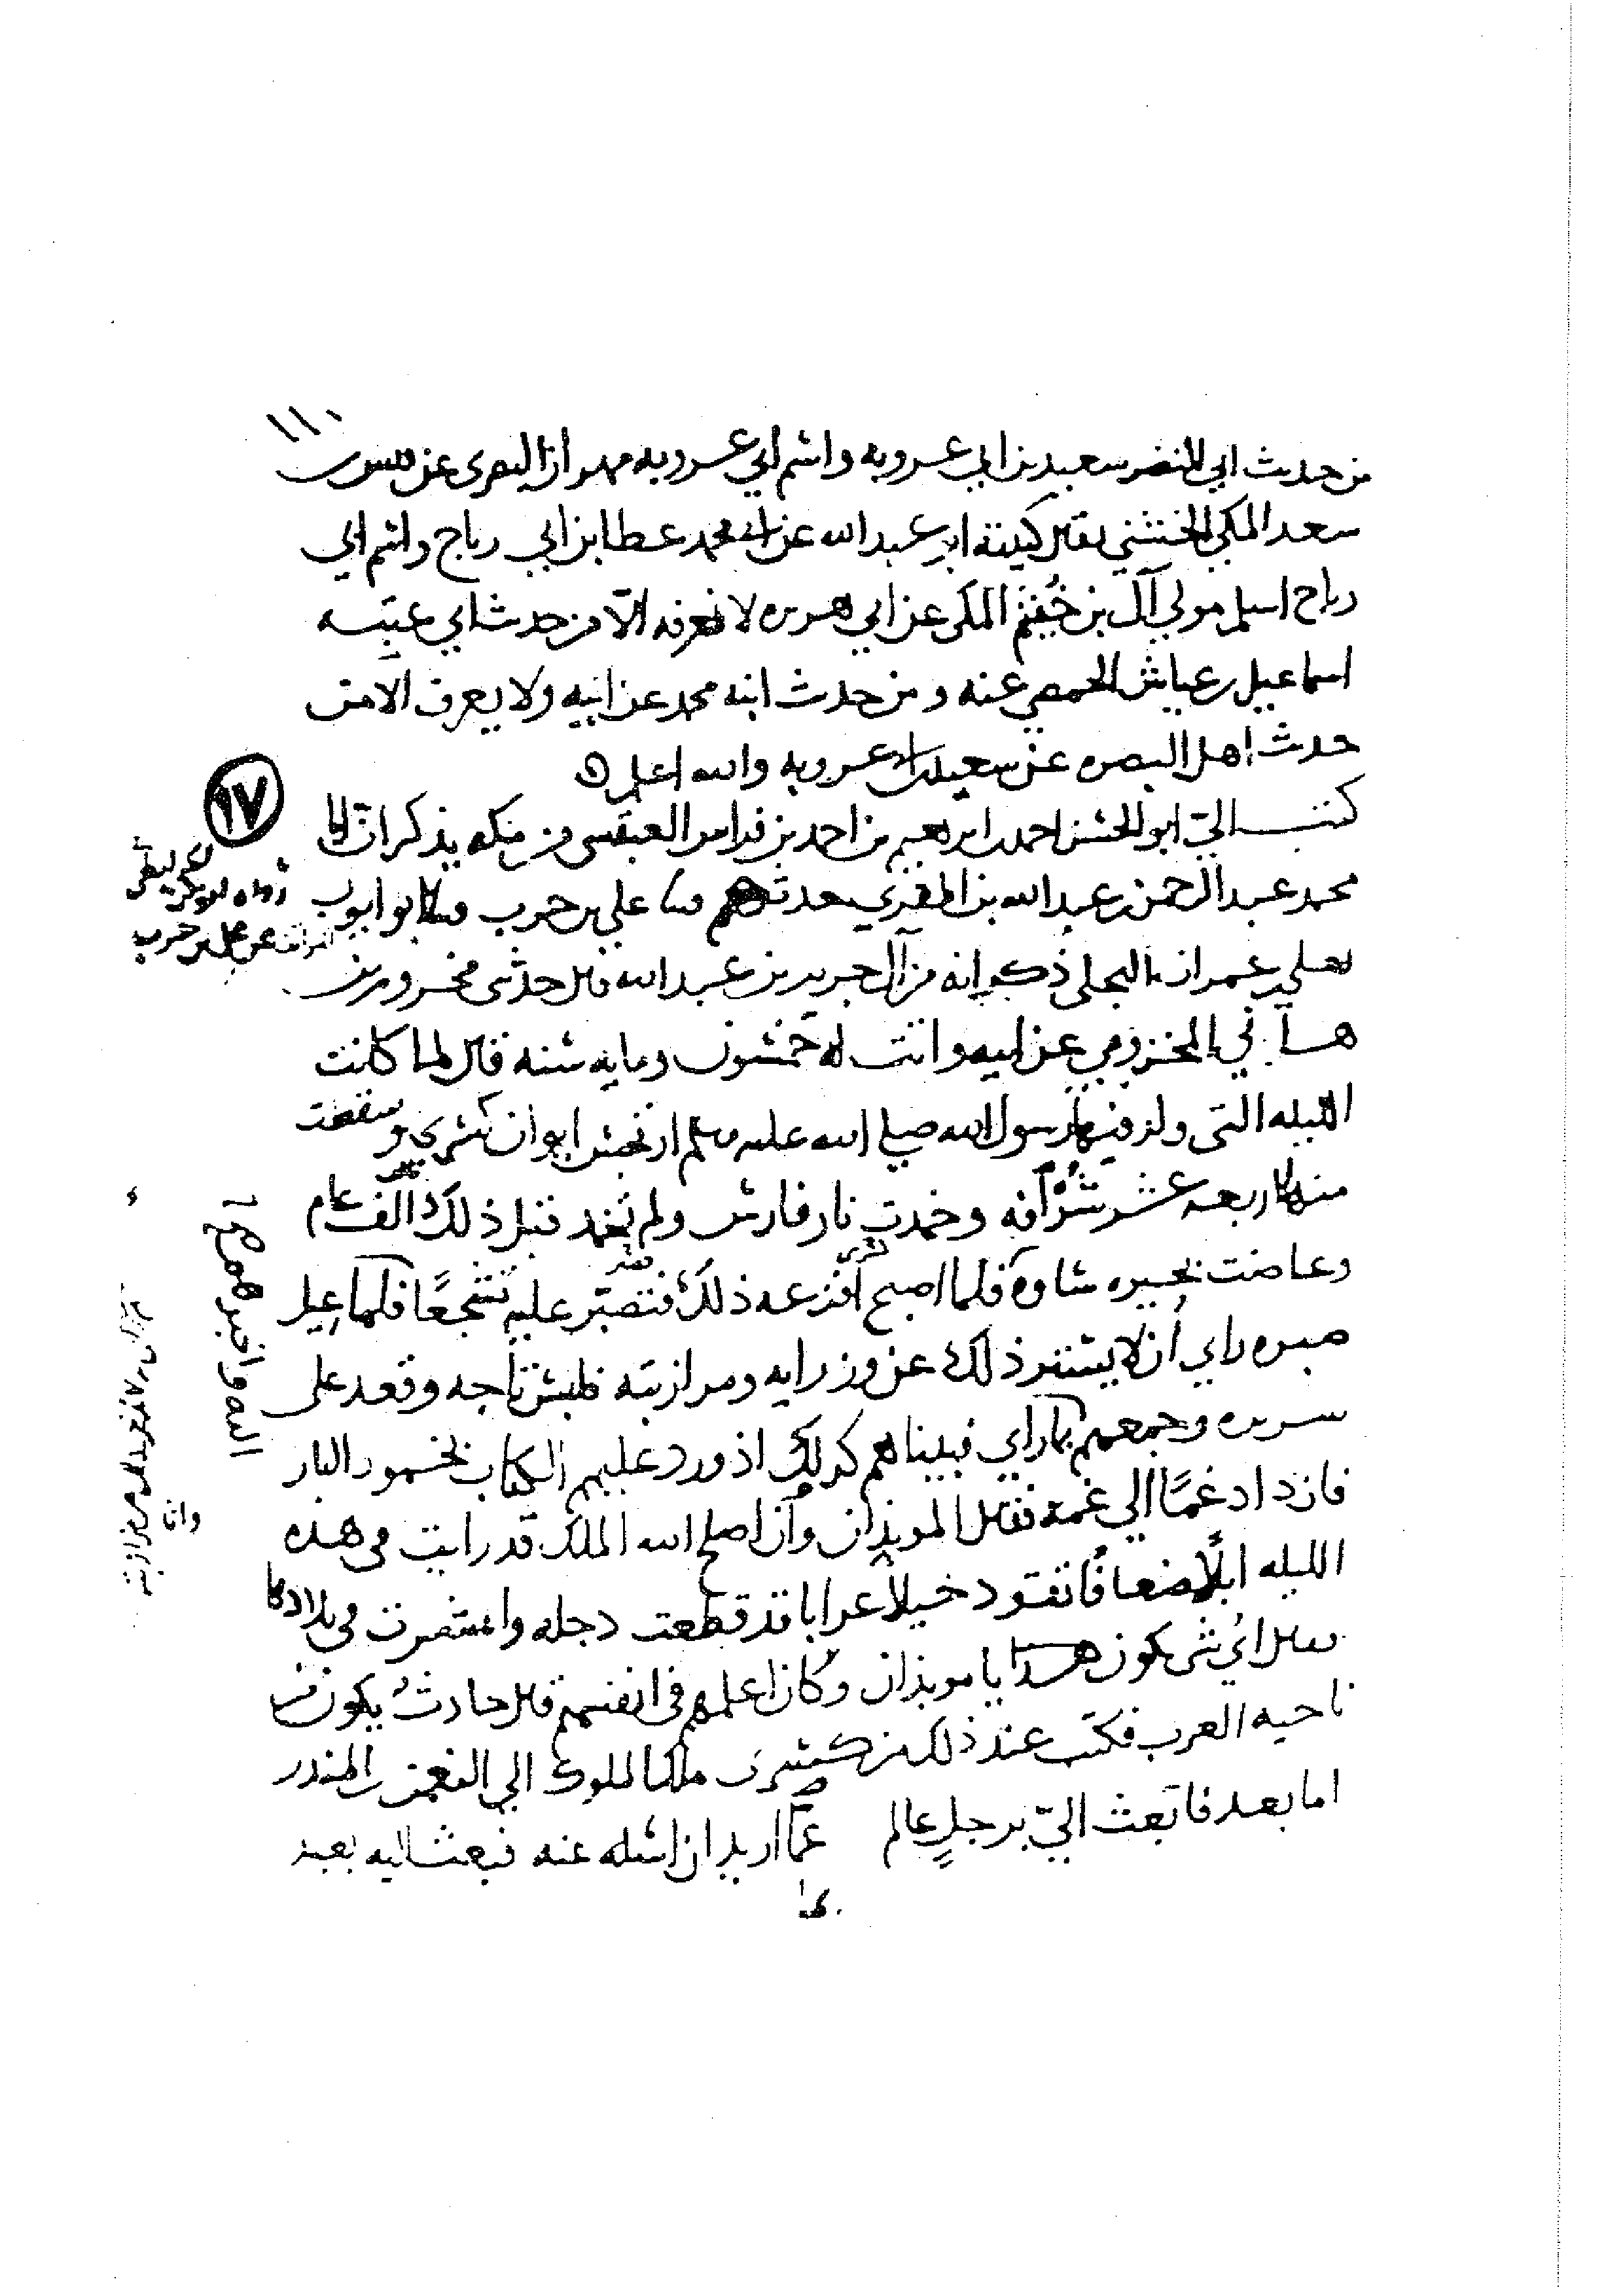 من حديث ابي النضر سعيد بن ابي عروبه واسم ابي عروبه مهران البصري عن قيس بن
سعد المكي الحبشي يقال كنيته ابو عبد الله عن ابي محمد عطا بن ابي رباح واسم ابي
رباح اسلم مولي آل بن خُثيم المكي عن ابي هريره لا نعرفه الّا من حديث ابي عتبه
اسماعيل بن عياش الحمصي عنه ومن حديث ابنه محمد عن ابيه ولا يعرف الا من
حديث اهل البصره عن سعيد بن ابي عروبه والله اعلم
١٧
كتب اليّ ابو الحسن احمد بن ابرهيم بن احمد بن فراس العبقسي من مكه يذكر ان ابا
محمد عبد الرحمن بن عبد الله بن المقري حدثهم علي بن حرب ابو ايوب
يعلي بن عمران البجلي ذكر انه من آل جرير بن عبد الله قال حدثني مخزوم بن
هاني المخزومي عن ابيه واتت له خمسون ومايه سنه قال لما كانت
الليله التي ولد فيها رسول الله صلي الله عليه وسلم ارتجس ايوان كسري وسقطت
منه اربعه عشر شُرّافه وخمدت نار فارس ولم تخمد قبل ذلك الف عام
وغاضت بحيره ساوه فلما اصبح افزعه ذلك فتصبّر عليه تشجعًا فلما عيل
صبره راي أن لا يستر ذلك عن وزرايه ومرازبته فلبس تاجه وقعد على
سريره وجمعهم بماراي فبيناهم كذلك اذ ورد عليهم الكتاب بخمود النار
فازداد غمًا الي غمه فقال الموبذان وأنا اصلح الله الملك قد رايت في هذه
الليله ابلًا صعابًا تقود خيلًا عرابا قد قطعت دجله وانتشرت في بلادها
قال ايُ شي يكون هذا يا موبذان وكان اعلمهم في انفسهم قال حادثُ يكون من
ناحيه العرب فكتب عند ذلك من كسري ملك الملوك الي النعمن بن المنذر
اما بعد فابعث اليّ برجلٍ عالم عمّا اريد ان اسله عنه فبعث اليه بعبد